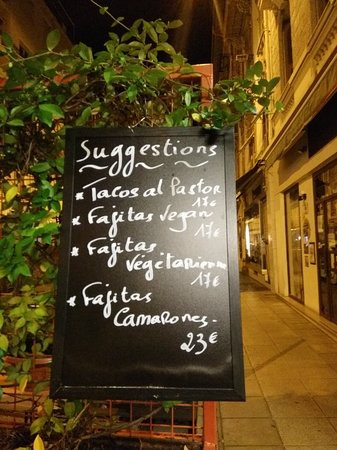 Suggestions
* Tacos al Pastor
17€
* Fajitas Vegan
17€
* Fajitas
Végétarienne
17€
* Fajitas
Camarones.
23€